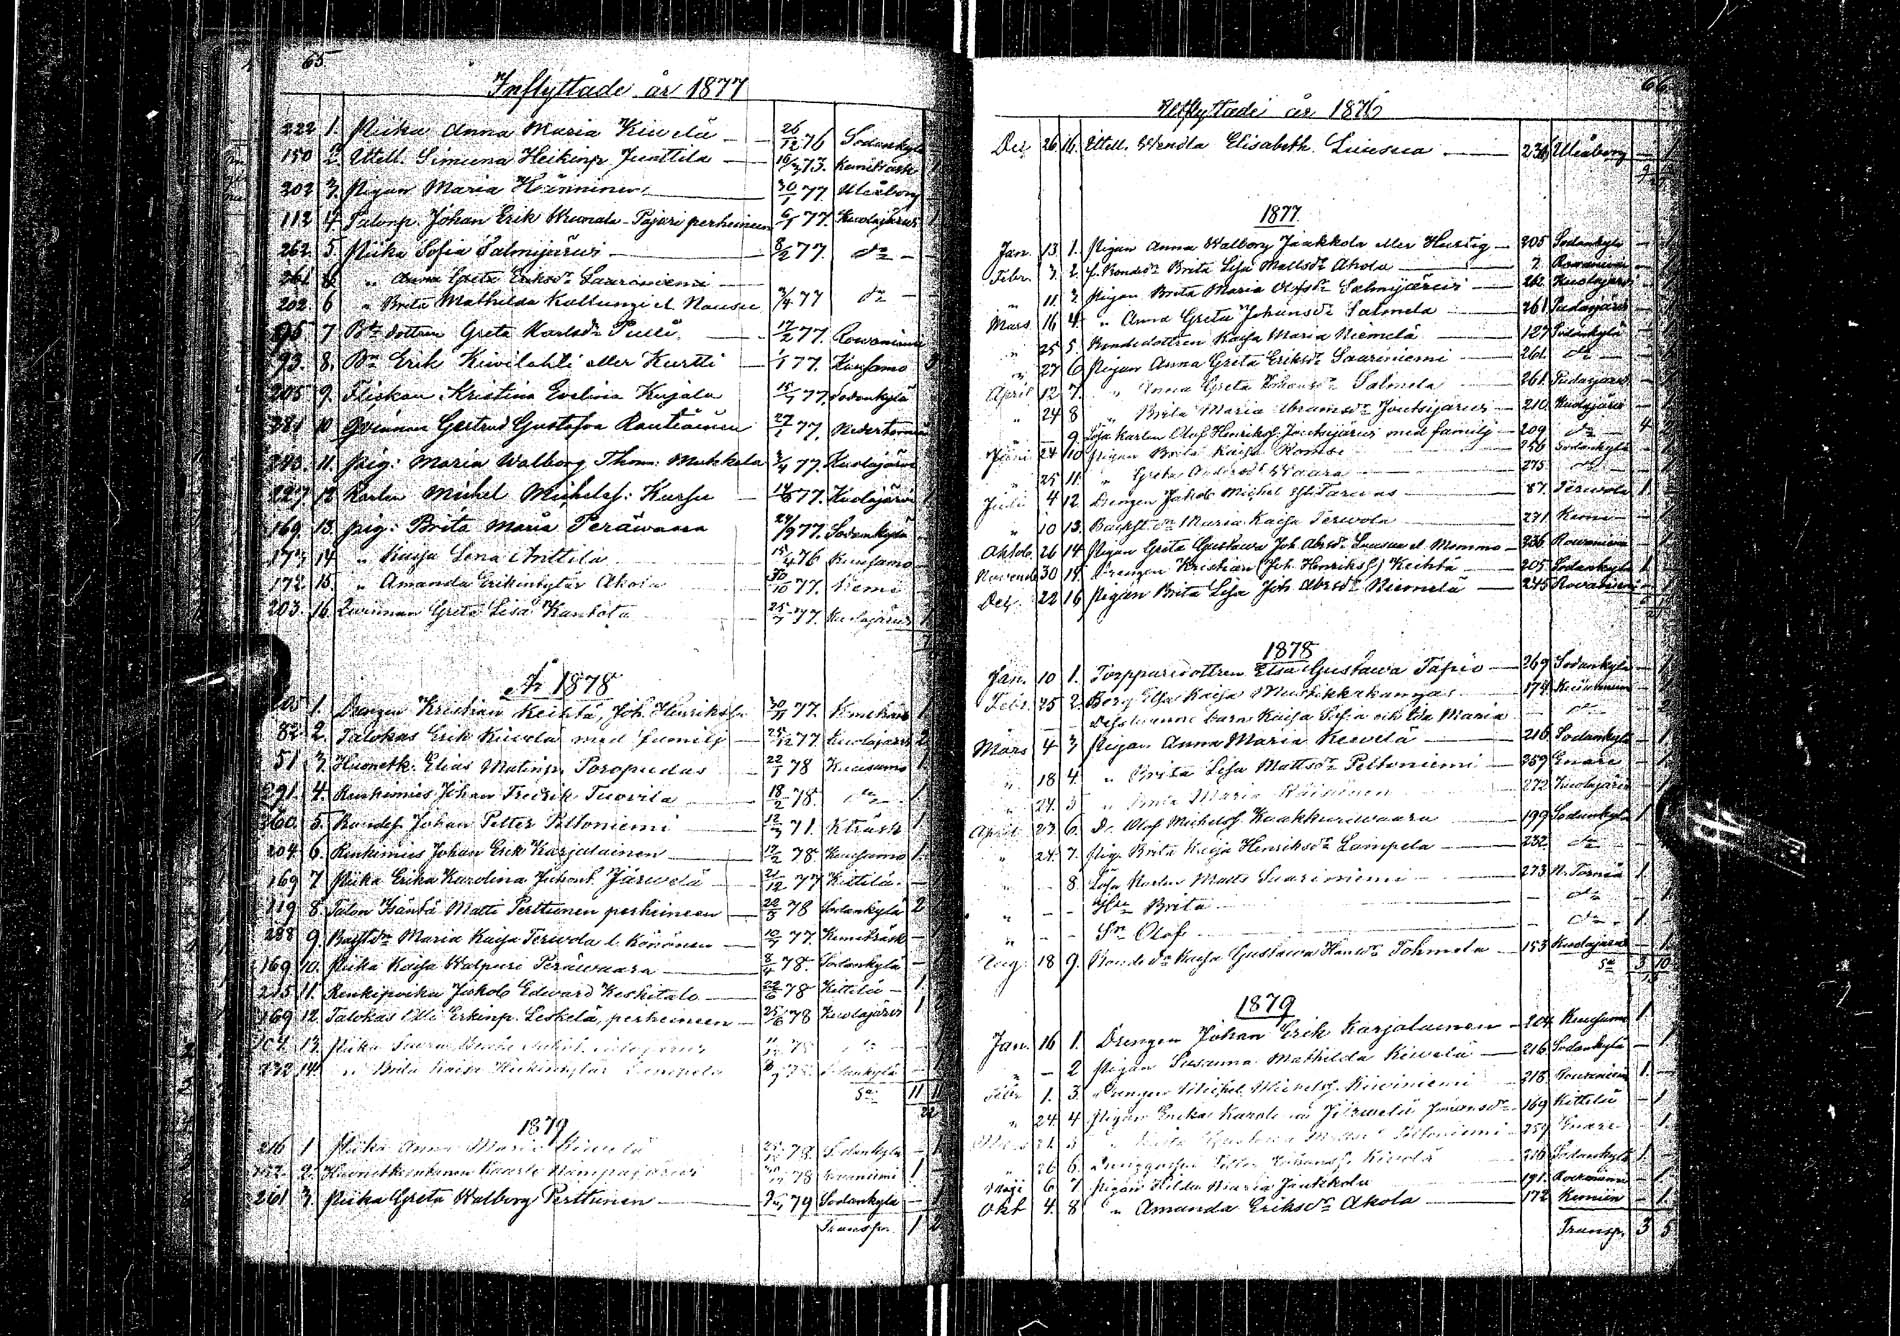 65
Inflyttade år 1877
222 1. Piika Anna Maria Kiwelä 26/12 76 Sodankylä
150 2. Ittell. Simuna Heikinp. Junttila 16/3 73. Kemiträsk 1
202 3. Pigan Maria Hänninen 30/1 77. Uleåborg
112 4. Talonp. Johan Erik Pajari perheineen 6/1 77. Kuolajärvi 1
262. 5. Piika Sofia Salmijärvi 8/2 77. do
261 " Anna Greta Eriksdr Saariniemi
202 6 " Brita Mathilda Kallunqi el. Nousu 3/4 77 do
95 7 Bdedottren Greta Karlsdr Pulli 12/2 77. Rowaniemi
93. 8. Bn Erik Kiwilahti eller Kurtti 1/1 77. Kuusamo
205 9. Flickan Kristina Evelina Kujala 15/1 77. Sodankylä
281 10 Qvinnan Gertrud Gustafva Rautiainen 27/1 77. Nedertorneå
293. 11. Pig: Maria Walborg Thom: Mukkala 3/4 77. Kuolajärvi
227. 12 Karlen Michel Michelsf: Kursu 14/5 77. Kuolajärvi 1
169. 13. Pig: Brita Maria Peräwaara 24/9 77. Sodankylä
177. 14 " Kajsa Lena Anttila 15/4 76 Kuusamo
172. 15 " Amanda Erikintytär Akola 30/10 77. Kemi
203. 16. Qvinnan Greta Lisa Kantola 25/7 77. Kuolajärvi 1
År 1878
205 1. Drengen Kristian Keihtä, Joh. Henriksf. 30/11 77. Kemiträsk 1
82. 2. Talokas Erik Kiwela med familj 25/12 77 Kuolajärvi 2
51 3. Huonetk. Elias Matinp. Poropudas 22/1 78 Kuusamo 1
291. 4. Renkimies Johan Fredrik Tuovila 18/2 78. do 1
260. 5. Bondef. Johan Petter Peltoniemi 12/3 71. K.träsk 1
204. 6. Renkimies Johan Erik Karjalainen 17/2 78. Kuusamo 1.
169 7 Piika Erika Karolina Juhont. Järwelä 21/12 77 Kittilä. –
119 8. Talon Isäntä Matti Perttunen perheineen 22/5 78 Sodankylä 2
288 9. Maria Kajsa Terwola l. Könönen 10/7 77. Kemiträsk –
169 10. Piika Kajsa Walpuri Peräwaara 8/4 78. Sodankylä –
215 11. Renkipoika Jakob Edward Keskitalo 22/6 78 Kittilä – 1
169 12. Talokas Olli Erkinp. Leskelä, perheineen 25/6 78 Kuolajärvi 1
13. Piika 78 do
232 14. " Brita Kaisa Heikintytär Lampela 78. Sodankylä
Sa 11 11
22
1879
216 1 Piika Anna Maria Kiwelä 78. Sodankylä – 1
152. 2. Kaarle Hampajärvi 78 Rovaniemi 1
261 3. Piika Greta Walborg Perttunen 79 Sodankylä – 1
Transp. 1 2
66
Utflyttade år 1876
Dec. 26 16. Ittell. Wendla Elisabeth Luusua 236 Uleåborg – 1
1877
Jan. 13 1. Pigan Anna Walborg Jaakkola eller Hurtig 205 Sodankylä – 1
Febr. 3. 2. f. Bondedr Brita Lisa Mattsdr Akola 2. Rovaniemi – 1
" 11 3 Pigan Brita Maria Olofsdr Salmijärvi 262. Kuolajärvi – 1
Mars 16 4. " Anna Greta Johansdr Salmela 261 Pudasjärvi – 1
" 25 5. Bondedottren Kajsa Maria Niemelä 127 Sodankylä – 1
" 27 6 Pigan Anna Greta Eriksdr Saariniemi 261. do – 1
April 12 7. " Anna Greta Johansdr Salmela 261 Pudasjärvi – 1
" 24 8 " Brita Maria Abramsdr Joutsijärvi 210 Kuolajärvi – 1
" – 9 Lösa Karlen Olof Henriksf. Joutsijärvi med familj 209 do 4 2
Juni 24 10 Pigan Brita Kaisa Romsi Sodankylä – 1
" 25 11. " Greta Andersdr Waara 275 do – 1
Juli 4 12 Drengen Jakob Michel Tarwas 87. Terwola 1
" 10 13. Maria Kaisa Terwola 271 Kemi – 1
Oktob. 26 14 Pigan Greta Gustawa Joh. Abrdr Luusua el. Mommo 236 Rovaniemi – 1
Novemb 30 15. Drengen Kristian (Joh. Henriksf.) Keihtä 205 Sodankylä 1
Dec. 22 16 Pigan Brita Lisa Joh. Abrsdr Niemelä 245 Rovaniemi – 1
1878
Jan. 10 1. Torpparedottren Elsa Gustawa Tapio 269 Sodankylä – 1
Febr. 25 2. Elsa Kajsa Mustikkakangas 174 Rovaniemi – 1
– Dess barn Kaisa Sofia och Eva Maria do – 2
Mars 4 3 Pigan Anna Maria Kiwelä 216 Sodankylä – 1.
" 18 4. " Brita Lisa Mattsdr Peltoniemi 259 Enare – 1
" 24. 5 " Maria 272 Kuolajärvi – 1
April 23 6. Dr. Olof Michelsf. Kaakkurivaara 199 Sodankylä 1
" 24. 7. Pig. Brita Kaisa Henriksdr Lampela 232 do – 1
" – 8. Lösa Karlen Matts Saariniemi 273 N. Torneå 1
" – – Hu Brita – do – 1.
" – – Sn Olof – do 1
Aug. 18 9. Bondedr Kaisa Gustawa Hansdr Tohmola 153 Kuolajärvi – 1.
Sa 3 10
13
1879
Jan. 16 1. Drengen Johan Erik Karjalainen 204. Kuusamo 1
" – 2 Pigan Susanna Mathilda Kiwelä 216 Sodankylä – 1
Febr. 1. 3. Drengen Michel Michelsf. Kiviniemi 218 Rovaniemi 1. –
" 24. 4 Pigan Erika Karolina Järwelä Johansdr 169 Kittilä – 1
Mars 21 5 " Brita Gustawa Peltoniemi 259 Enare – 1.
" 26 6. Drenggossen Petter Johansf. Kiwelä 216 Sodankylä 1 –
Maji 6 7 Pigan Hilda Maria Jaakkola 191. Rovaniemi – 1
Okt 4. 8 " Amanda Eriksdr Akola 172 Kemi – 1
Transp. 3 5